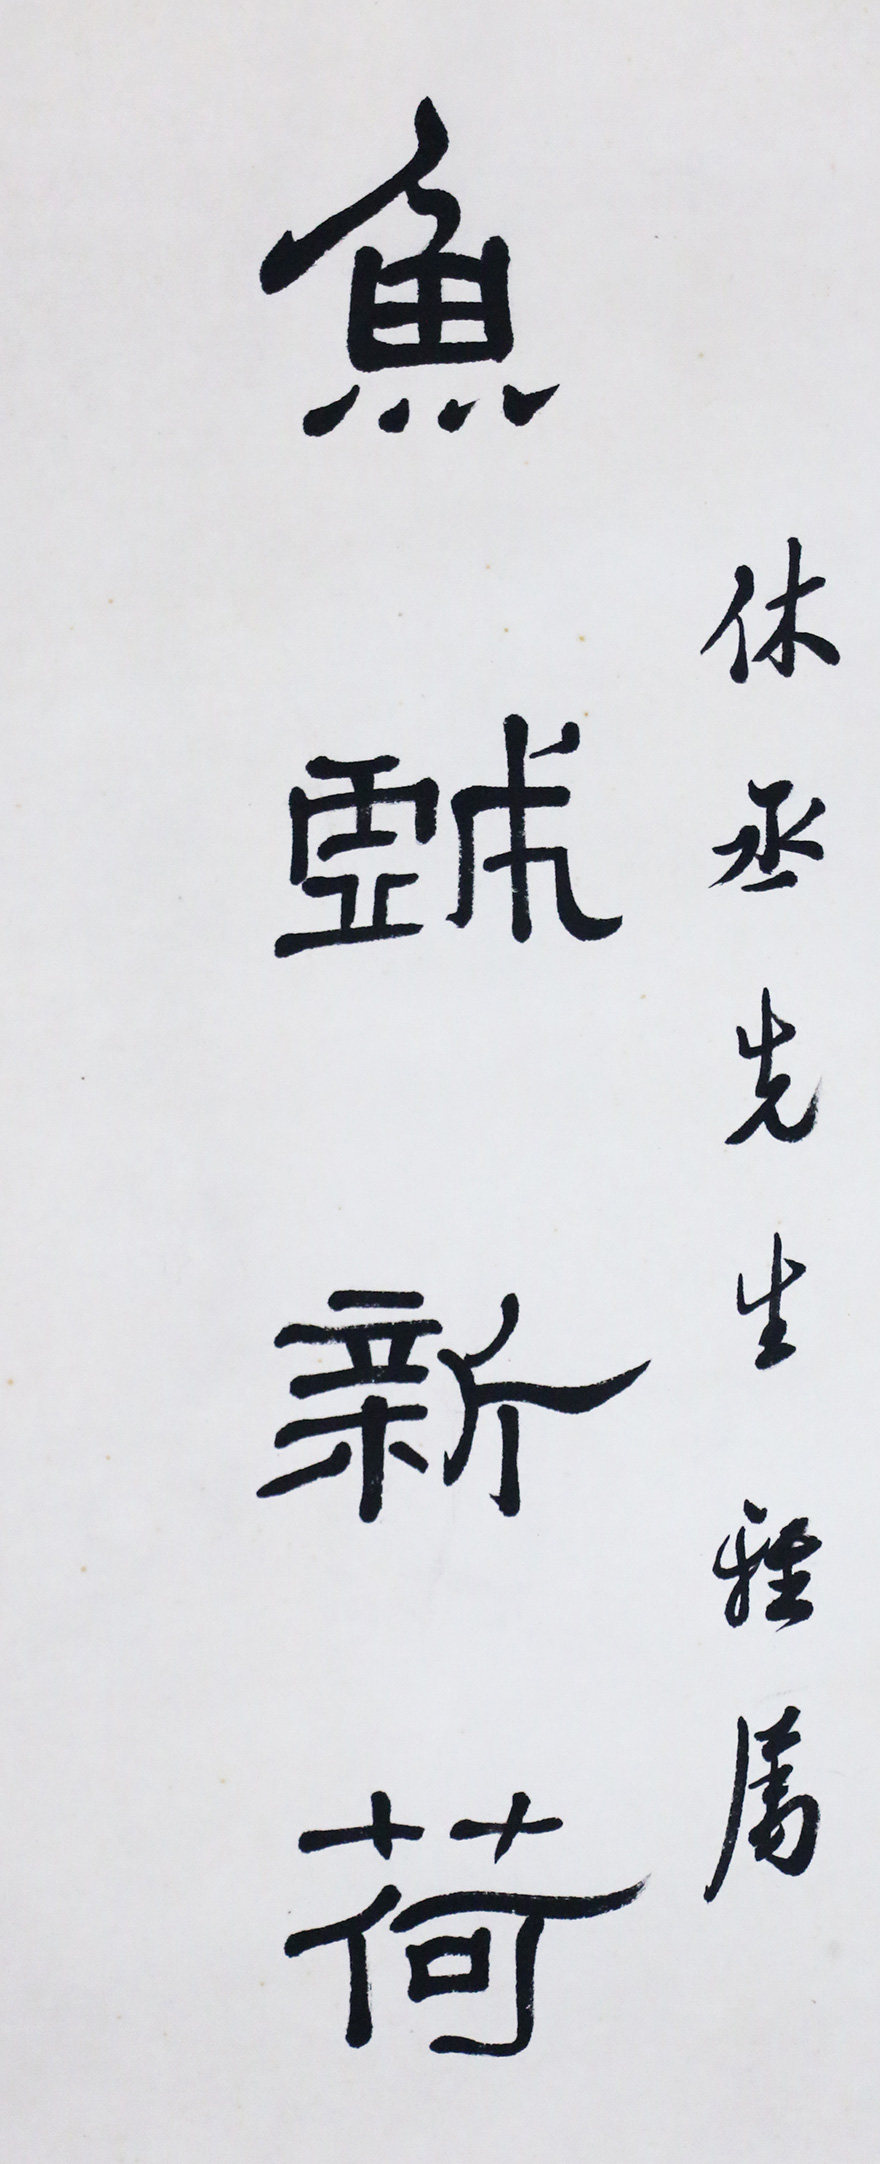 休丞先生雅屬
魚戲新荷